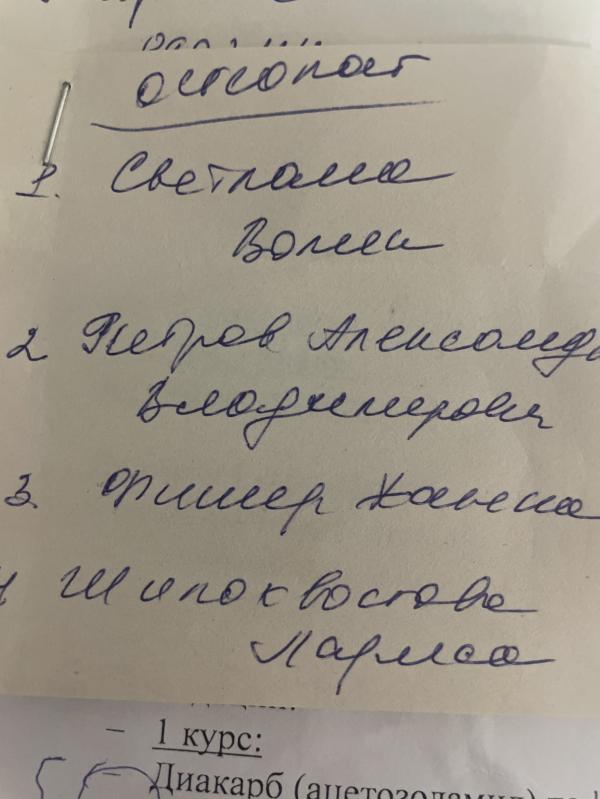 остеопат
1. Светлана
Волки
2 Петров Александр
Владимирович
3. Фишер Жанна
4 Шипохвостова
Лариса
– 1 курс:
– Диакарб (ацетозоламид)